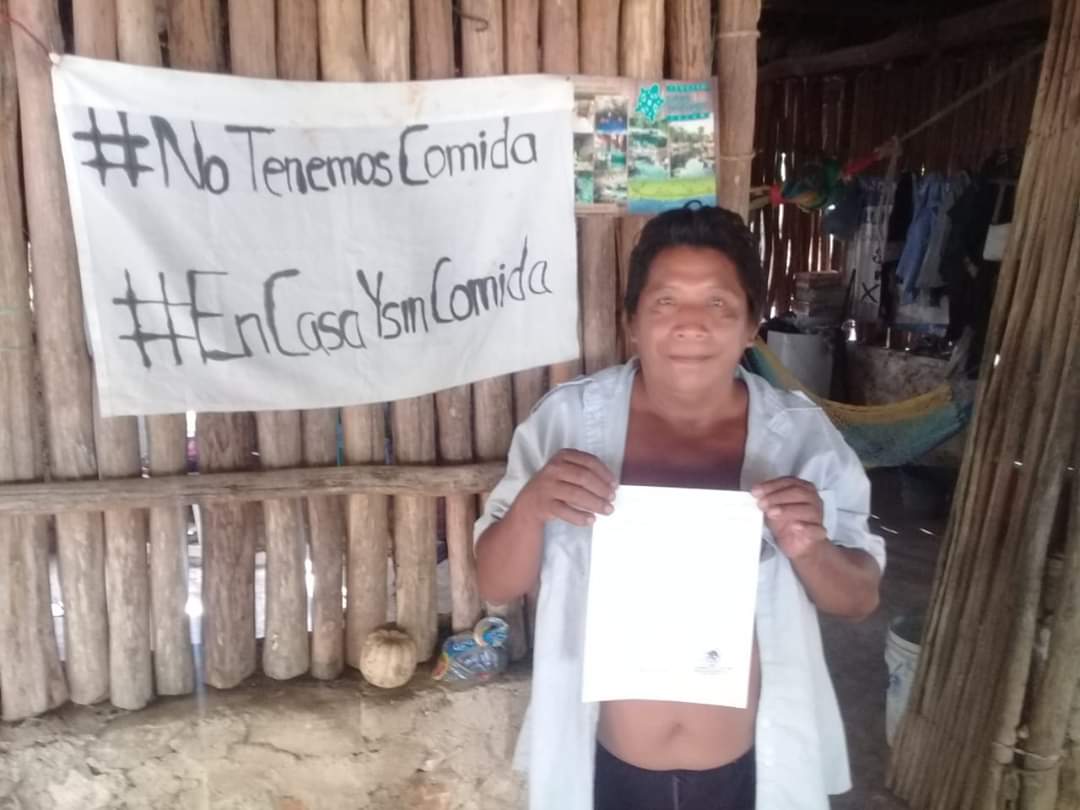 #NoTenemosComida
#EnCasaYsmComida